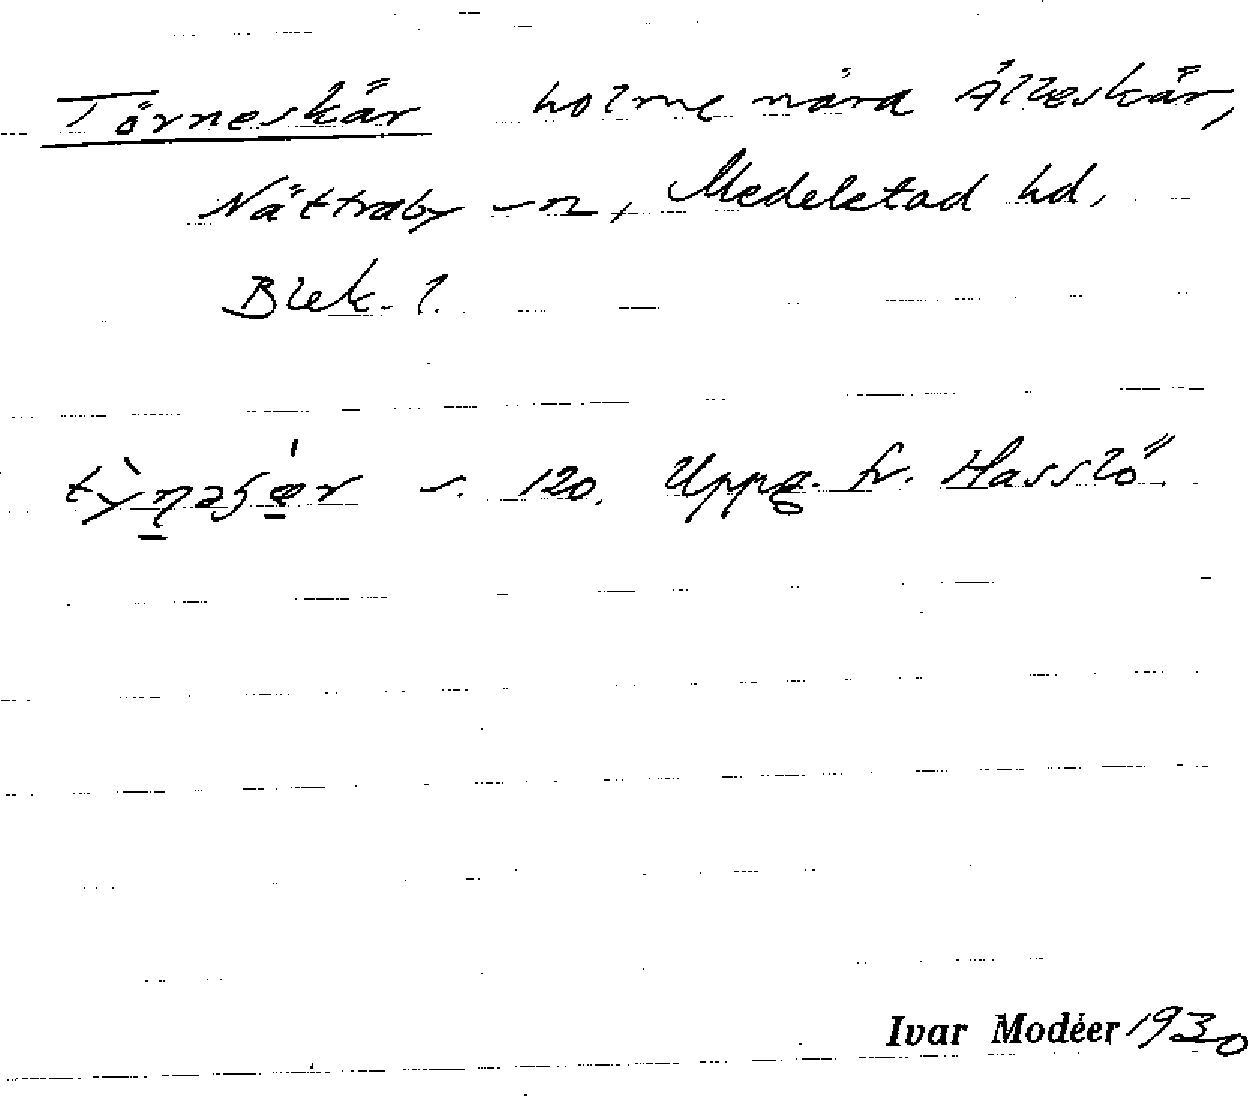 Törneskär holme nära Älleskär,
Nättraby sn, Medelstad hd,
Blek. l.
120. Uppg. fr. Hasslö.
Ivar Modéer 1930